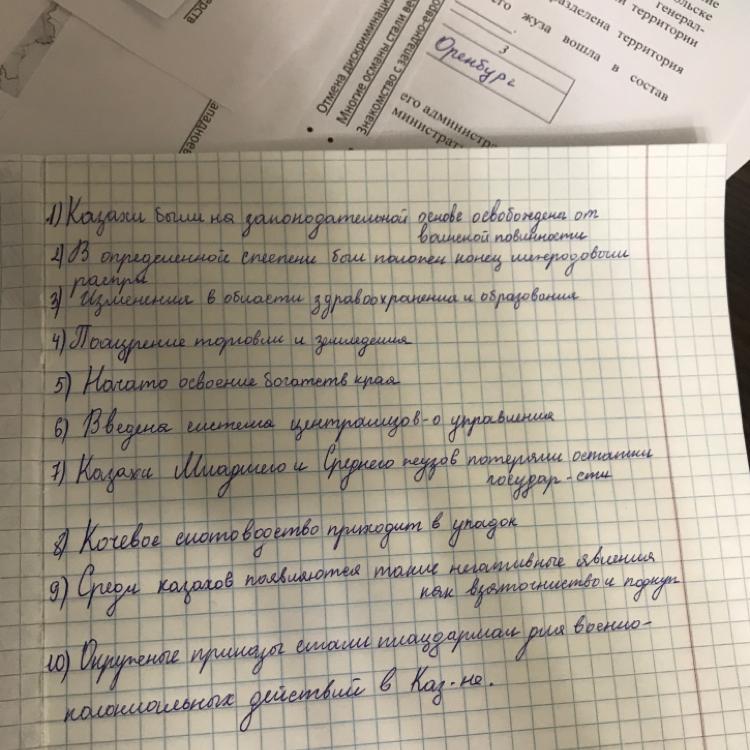 ольске
генерал-
и территории
разделена территория
его жуза вошла в состав
3
Оренбург
его администра
министрат
Отмена дискриминац
Многие османы стали вес
Знакомство с западно-евро
ападноев
ерств
1) Казахи были на законодательной основе освобождена от
воинской повинности
2) В определенной степени был положен конец межродовым
распры
3) Изменения в области здравоохранения и образования
4) Поощрение торговли и земледелия
5) Начато освоение богатств края
6) Введена система централизов-о управления
7) Казахи Младшего и Среднего жузов потеряли остатки
государ-сти
8) Кочевое скотоводство приходит в упадок
9) Среди казахов появляются такие негативные явления
как взяточниство и подкуп
10) Окружные приказы стали плацдармам для военно-
колониальных действий в Каз-не.